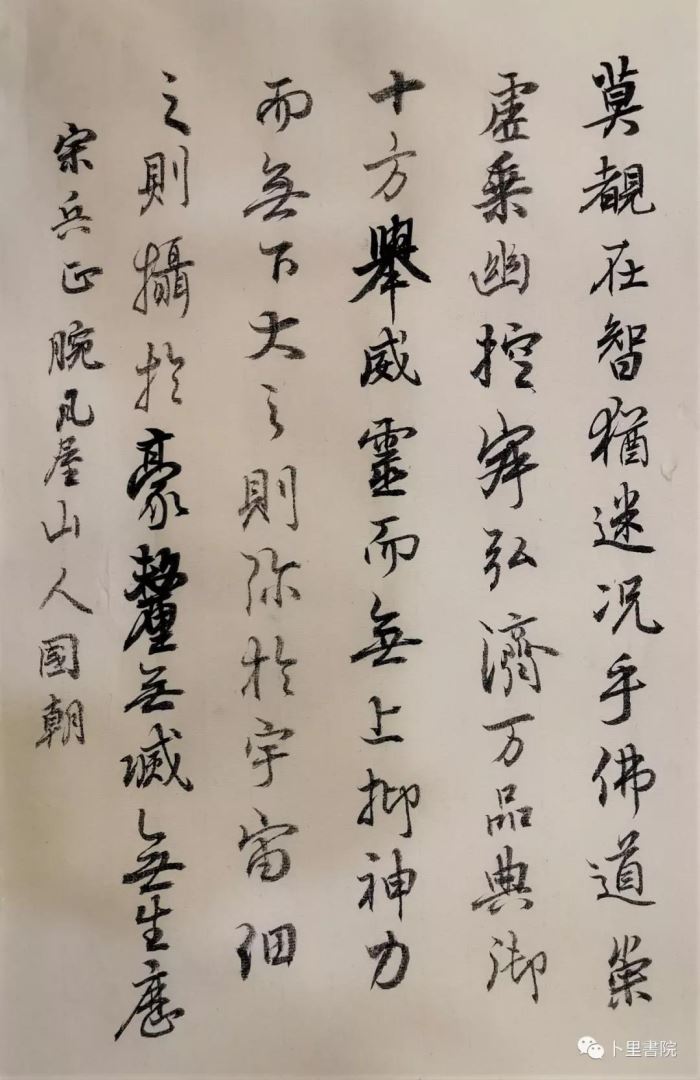 莫覩在智猶迷况乎佛道崇
虛乗幽控寂弘濟万品典御
十方舉威靈而無上抑神力
而無下大之則弥於宇宙細
之則攝於豪釐無滅無生歷
宋兵正腕凡屋山人國朝
卜里書院